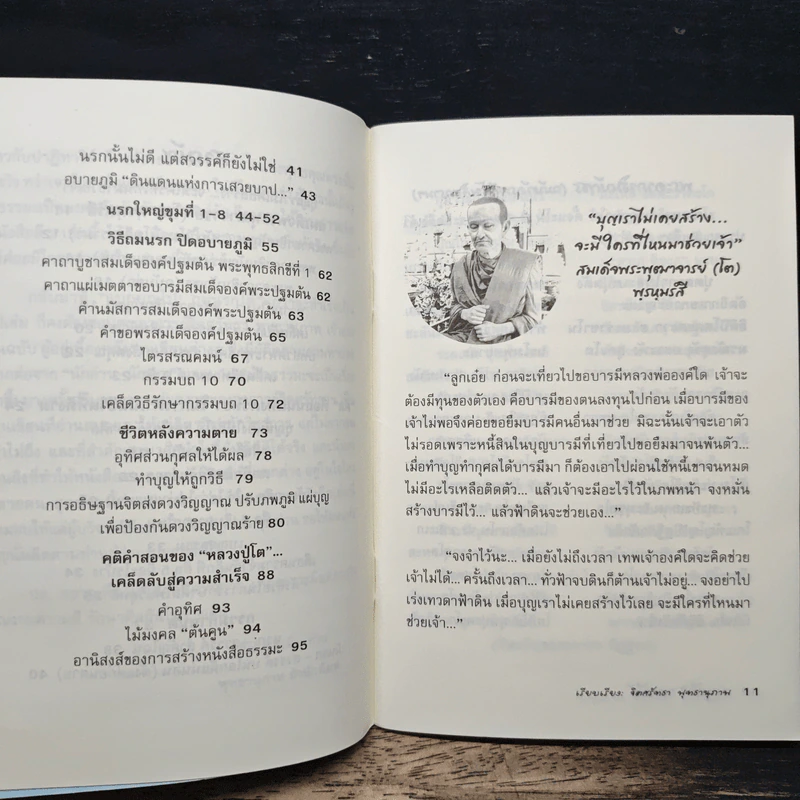 นรกนั้นไม่ดี แต่สวรรค์ก็ยังไม่ใช่ 41
อบายภูมิ "ดินแดนแห่งการเสวยบาป..." 43
นรกใหญ่ขุมที่ 1-8 44-52
วิธีถมนรก ปิดอบายภูมิ 55
คาถาบูชาสมเด็จองค์ปฐมต้น พระพุทธสิกขีที่ 1 62
คาถาแผ่เมตตาขอบารมีสมเด็จองค์พระปฐมต้น 62
คำนมัสการสมเด็จองค์พระปฐมต้น 63
คำขอพรสมเด็จองค์พระปฐมต้น 65
ไตรสรณคมน์ 67
กรรมบถ 10 70
เคล็ดวิธีรักษากรรมบถ 10 72
ชีวิตหลังความตาย 73
อุทิศส่วนกุศลให้ได้ผล 78
ทำบุญให้ถูกวิธี 79
การอธิษฐานจิตส่งดวงวิญญาณ ปรับภพภูมิ แผ่บุญ
เพื่อป้องกันดวงวิญญาณร้าย 80
คติคำสอนของ "หลวงปู่โต"...
เคล็ดลับสู่ความสำเร็จ 88
คำอุทิศ 93
ไม้มงคล "ต้นคูน" 94
อานิสงส์ของการสร้างหนังสือธรรมะ 95
"บุญเราไม่เคยสร้าง...
จะมีใครที่ไหนมาช่วยเจ้า"
สมเด็จพระพุฒาจารย์ (โต)
พรฺหมฺรํสี
"ลูกเอ๋ย ก่อนจะเที่ยวไปขอบารมีหลวงพ่อองค์ใด เจ้าจะ
ต้องมีทุนของตัวเอง คือบารมีของตนลงทุนไปก่อน เมื่อบารมีของ
เจ้าไม่พอจึงค่อยขอยืมบารมีคนอื่นมาช่วย มิฉะนั้นเจ้าจะเอาตัว
ไม่รอดเพราะหนี้สินในบุญบารมีที่เที่ยวไปขอยืมมาจนพ้นตัว...
เมื่อทำบุญทำกุศลได้บารมีมา ก็ต้องเอาไปผ่อนใช้หนี้เขาจนหมด
ไม่มีอะไรเหลือติดตัว... แล้วเจ้าจะมีอะไรไว้ในภพหน้า จงหมั่น
สร้างบารมีไว้... แล้วฟ้าดินจะช่วยเอง..."
"จงจำไว้นะ... เมื่อยังไม่ถึงเวลา เทพเจ้าองค์ใดจะคิดช่วย
เจ้าไม่ได้... ครั้นถึงเวลา... ทั่วฟ้าจบดินก็ต้านเจ้าไม่อยู่... จงอย่าไป
เร่งเทวดาฟ้าดิน เมื่อบุญเราไม่เคยสร้างไว้เลย จะมีใครที่ไหนมา
ช่วยเจ้า..."
เรียบเรียง: จิตศรัทธา พุทธานุภาพ 11